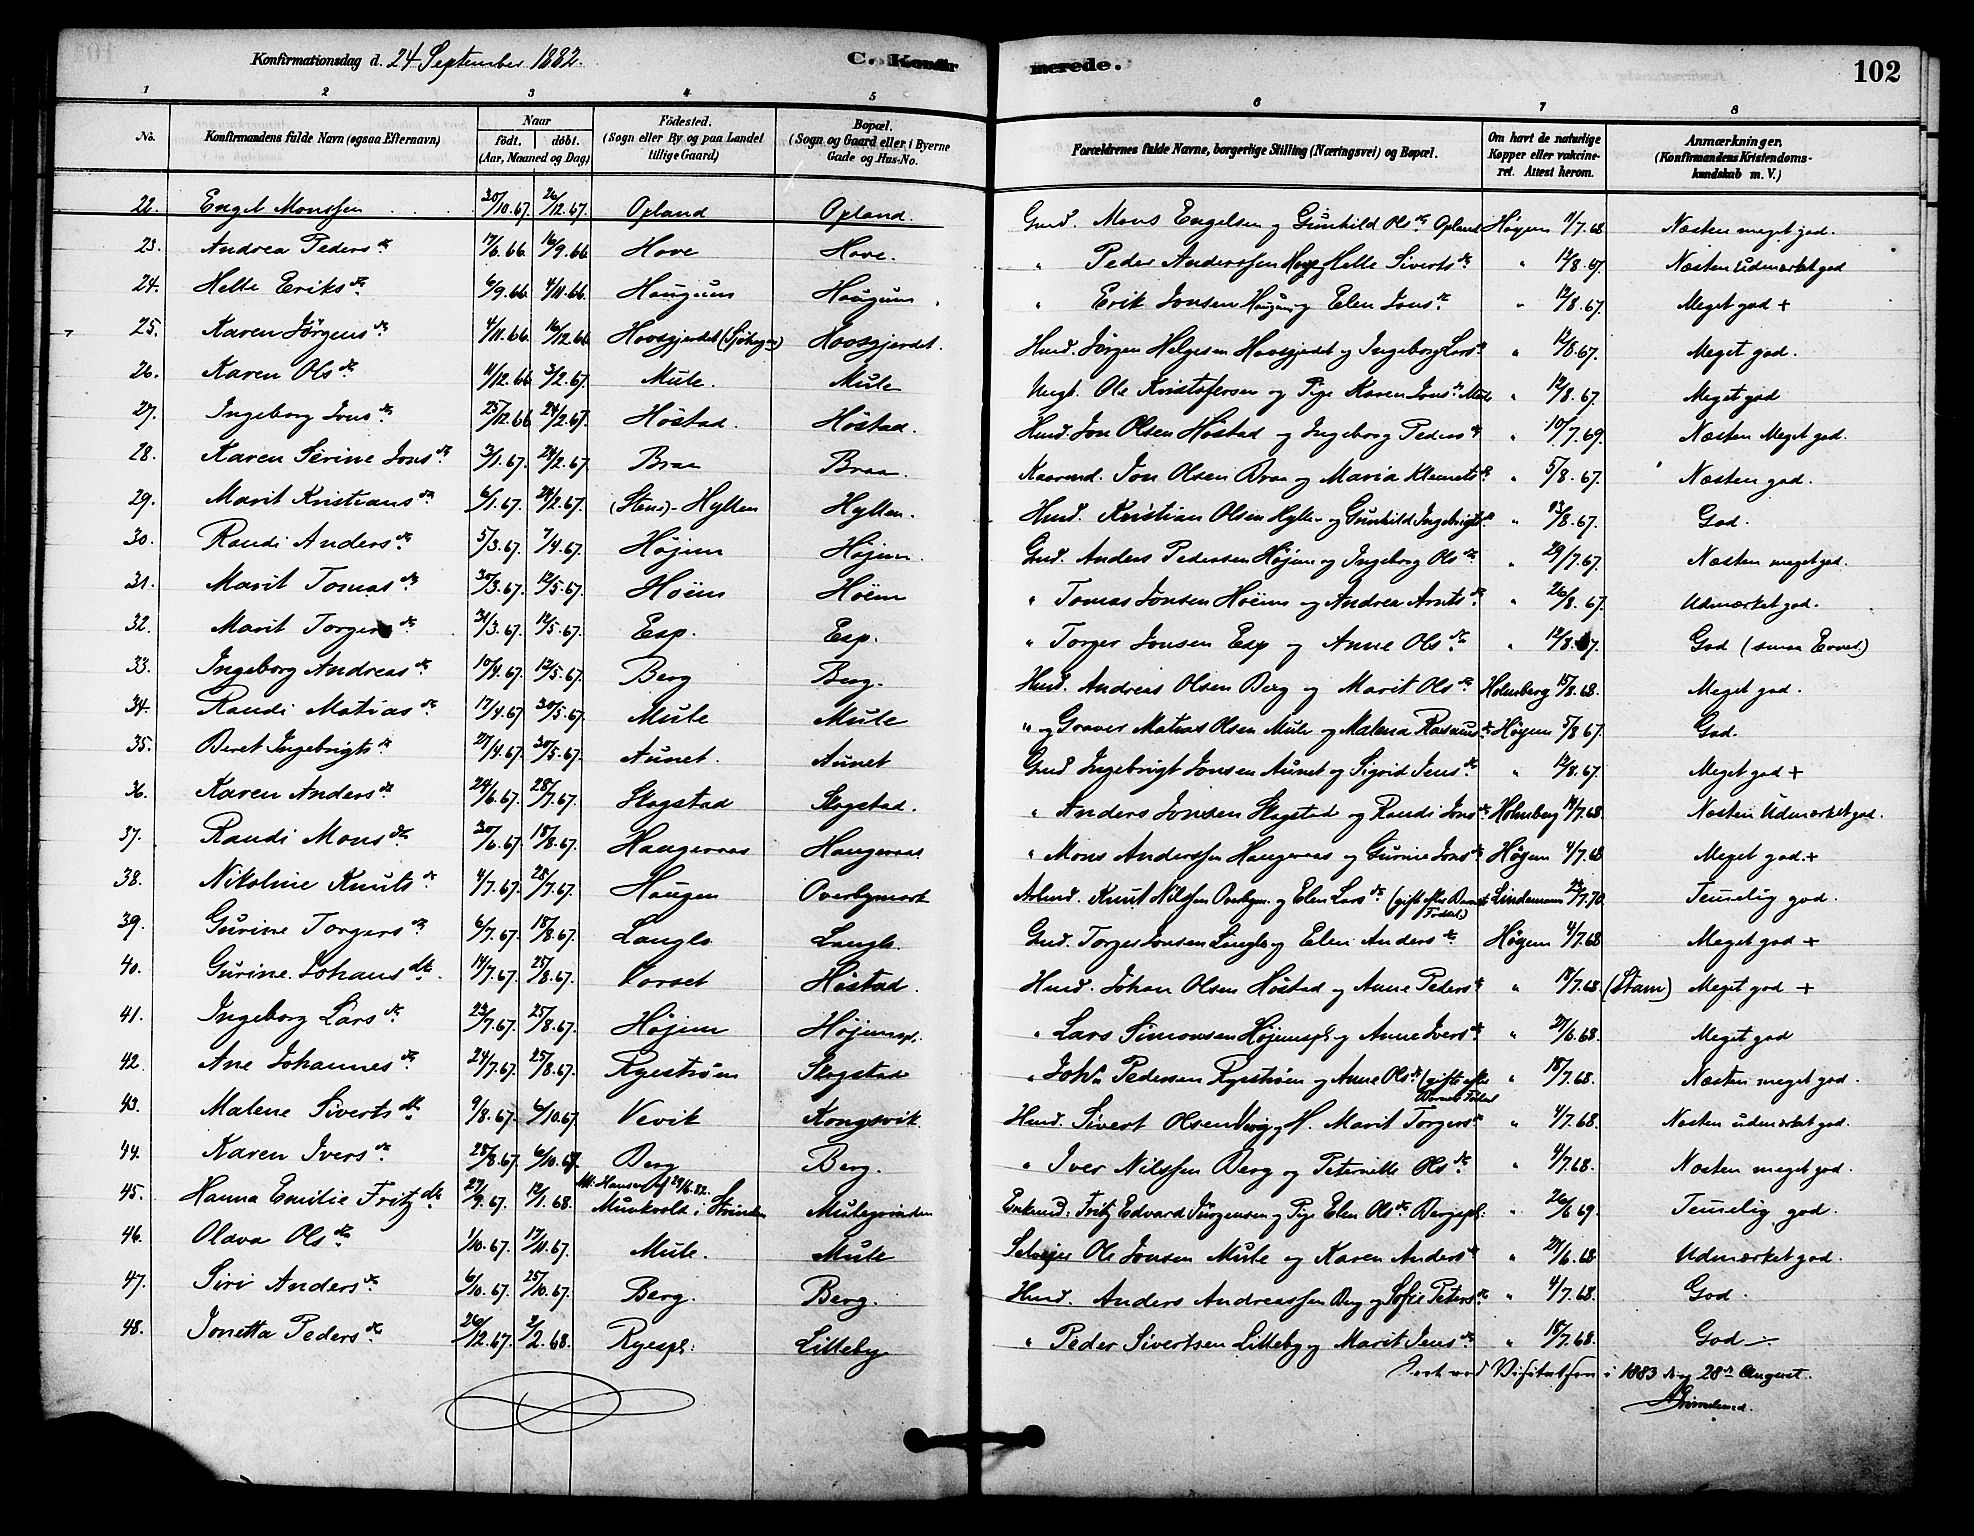 Konfirmationsdag d. 24 September 1882.
C. Konfirmerede.
102
1 2 3 4 5 6 7 8
No. Konfirmandens fulde Navn (ogsaa Efternavn) Naar født. døbt. (Aar, Maaned og Dag) Fødested. (Sogn eller By og paa Landet tillige Gaard) Bopæl. (Sogn og Gaard eller i Byerne Gade og Hus-No. Forældrenes fulde Navne, borgerlige Stilling (Næringsvei) og Bopæl. Om havt de naturlige Kopper eller vakcineret. Attest herom. Anmærkninger. (Konfirmandens Kristendomskundskab m. V.)
22. Engel Monssen 30/10.67. 26/12.67. Opland Opland. Gmd. Mons Engelsen og Gunhild Olsdtr Opland Høyem 11/7.68 Næsten meget god.
23. Andrea Pedersdtr 17/6.66 16/9.66 Hove Hove. " Peder Anderssen Hove og Helle Sivertsdtr " 12/8.67 Næsten udmærket god
24. Helle Eriksdtr 6/9.66 4/11.66. Haugum Haugum " Erik Jonsen Haugum og Elen Jonsdtr " 12/8.67. Meget god +
25. Karen Jørgensdtr 4/11.66. 16/12.66 Hovsgjerdet Hovsgjerdet. Husd. Jørgen Helgesen Hovsgjerdet og Ingeborg Larsdtr " 12/8.67. Meget god.
26. Karen Olsdtr 11/12.66 3/2.67. Mule. Mule Ungk. Ole Kristofersen og Pige Karen Jonsdtr Mule " 12/8.67. Meget god
27. Ingeborg Jonsdtr 25/12.66 24/2.67. Høstad. Høstad. Husd. Jon Olsen Høstad og Ingeborg Pedersdtr " 10/7.69 Næsten Meget god.
28. Karen Serine Jonsdtr 3/1.67. 24/2.67. Braa Braa. Jon Olsen Braa og Maria Klemetsdtr " 5/8.67. Næsten god.
29. Marit Kristiansdtr 6/1.67. 24/2.67. (Stens)-Hyllen Hyllen. Husd. Kristian Olsen Hyllen og Gunhild Ingebrigtsdtr " 13/8.67. God.
30. Randi Andersdtr 5/3.67. 7/4.67. Højem Højem. Gmd. Anders Pedersen Højem og Ingeborg Olsdtr " 29/7.67. Næsten meget god.
31. Marit Tomasdtr 30/3.67. 12/5.67. Høiem Høiem " Tomas Jonsen Høiem og Andrea Arntsdtr " 26/8.67. Udmærket god.
32. Marit Torgersdtr 31/3.67. 12/5.67. Esp. Esp. " Torger Jonsen Esp og Anne Olsdtr " 12/8.67. God (smaa Evner)
33. Ingeborg Andreasdtr 10/4.67. 12/5.67. Berg Berg. Husd. Andreas Olsen Berg og Marit Olsdtr Holmberg 15/8.68. Meget god.
34. Randi Matiasdtr 17/4.67 30/5.67. Mule Mule " og Graver Matias Olsen Mule og Malena Rasmusdtr Høyem 5/8.67 God.
35. Beret Ingebrigtsdtr 27/4.67. 30/5.67. Aunet. Aunet Gmd Ingebrigt Jonsen Aunet og Sigrid Jensdtr " 12/8.67. Meget god +
36. Karen Andersdtr 24/6.67. 28/7.67. Skogstad Skogstad. " Anders Jonsen Skogstad og Randi Jonsdtr Holmberg 14/7.68 Næsten Udmærket god.
37. Randi Monsdtr 30/6.67. 18/8.67. Haugernas Haugernas " Mons Anderssen Haugernas og Gurine Jonsdtr Høyem 4/7.68 Meget god.+
38. Nikoline Knutsdtr 4/7.67. 28/7.67. Haugen Overbymark Arbmd. Knut Nilssen Overbym. og Elen Larsdtr (gift efter Barnets Fødsel) Lindemann 23/7.70. Temelig god.
39. Gurine Torgersdtr 6/7.67. 18/8.67. Langlo Langlo. Gmd. Torger Jonsen Langlo og Elen Andersdtr Høyem 4/7.68 Meget god +
40. Gurine Johansdtr 14/7.67. 25/8.67. Korset Høstad. Husd. Johan Olsen Høstad og Anne Pedersdtr " 18/7.68. (Stam) Meget god +
41. Ingeborg Larsdtr 23/7.67. 25/8.67. Højem Højemspl. " Lars Simonsen Højemspl. og Anne Iversdtr " 27/6.68. Meget god
42. Ane Johannesdtr 24/7.67. 25/8.67. Ryestrøen Skogstad " Johs Pedersen Ryestrøen og Anne Olsdtr (gift efter Barnets Fødsel " 18/7.68. Næsten meget god.
43. Malene Sivertsdtr 9/8.67. 6/10.67 Vevik Kongsvik. Husd. Sivert Olsen og H. Marit Torgersdtr " 4/7.68. Næsten udmærket god.
44. Karen Iversdtr 25/8.67. 6/10.67. Berg Berg. " Iver Nilssen Berg og Peternille Olsdtr " 4/7.68. Næsten meget god.
45. Hanna Emilie Fritzdtr 27/9.67. 12/1.68. Munkvold i Strinden Mulegrinden Fritz Edvard Jørgensen og Pige Elen Olsdtr Bergspl. " 26/6.69. Temelig god.
46. Olava Olsdtr 1/10.67. 17/11.67. Mule. Mule Selvejer Ole Jonsen Mule og Karen Andersdtr " 27/6.68 Udmærket god.
47. Siri Andersdtr 6/10.67. 25/10.67. Berg. Berg. Husd. Anders Andreassen Berg og Sofie Petersdtr " 4/7.68. God.
48. Jonetta Pedersdtr 26/12.67. 2/2.68. Ryespl. Litleby " Peder Sivertsen Litleby og Marit Jensdtr " 18/7.68. God
Visitatsen i 1883 den 28de August.